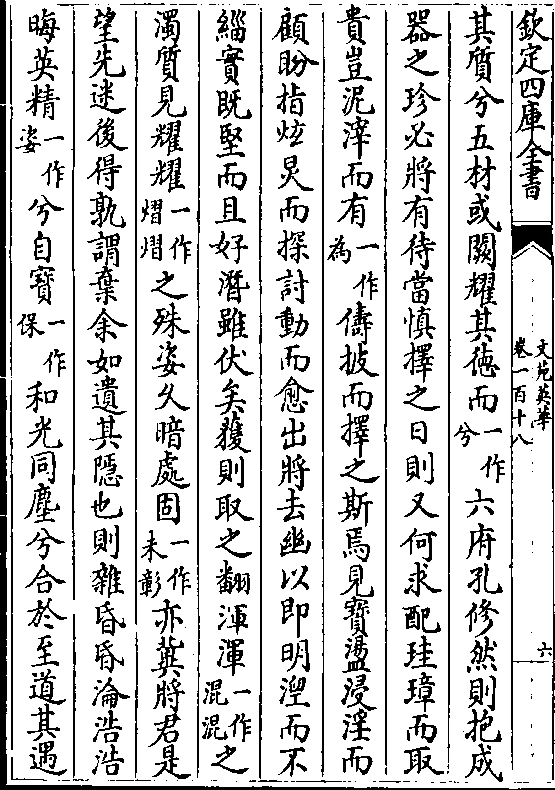 欽定四庫全書
文苑英華
卷一百十八
六
其質兮五材或闕耀其徳而一作兮六府孔修然則抱成
器之珍必將有待當慎擇之日則又何求配珪璋而取
貴豈泥滓而有一作為儔披而擇之斯焉見寳盪浸淫而
顧盼指炫炅而探討動而愈出將去幽以即明湼而不
緇實既堅而且好潛雖伏矣蒦則取之翻渾渾一作混混之
濁質見耀耀一作熠熠之殊姿久暗處固一作未彰亦蓂將君是
望先迷後得孰謂棄余如遺其隱也則雜昏昏淪浩浩
晦英精一作姿兮自寳一作保和光同塵兮合於至道其遇